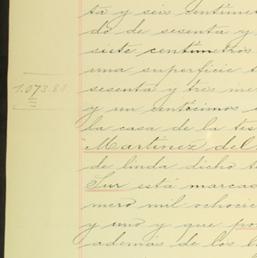 ta y seis centíme
do de sesenta y
siete centímetros
una superficie t
sesenta y tres me
1.073.80
y un centécimos c
la casa de la tes
Martinez del
de linda dicho t
Sur está marcad
mero mil ochocie
y uno y que por
ademas de los l